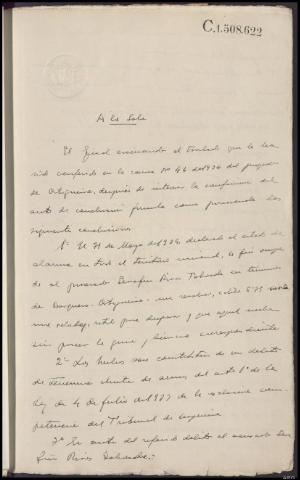 C.1.508.622
A la Sala
El Fiscal evacuando el traslado que le ha
sido conferido en la causa nº 44 de 1934 del juzgado
de Ortigueira, después de interesar la confirmación del
auto de conclusión formula como provisionales las
siguientes conclusiones
1ª El 31 de Mayo de 1934, declarado el estado de
alarma en todo el territorio nacional, le fué ocupa
do al procesado Serafin Pico Taboada en término
de Barquero - Ortigueira - un revolver,
util para disparar y que aquel
sin poseer la guia y licencia correspondiente
2ª Los hechos son constitutivos de un delito
de tenencia ilicita de armas del artº 1º de la
Ley de 4 de Julio de 1933 de la exclusiva com-
petencia del Tribunal de urgencia
3ª Es autor del referido delito el acusado